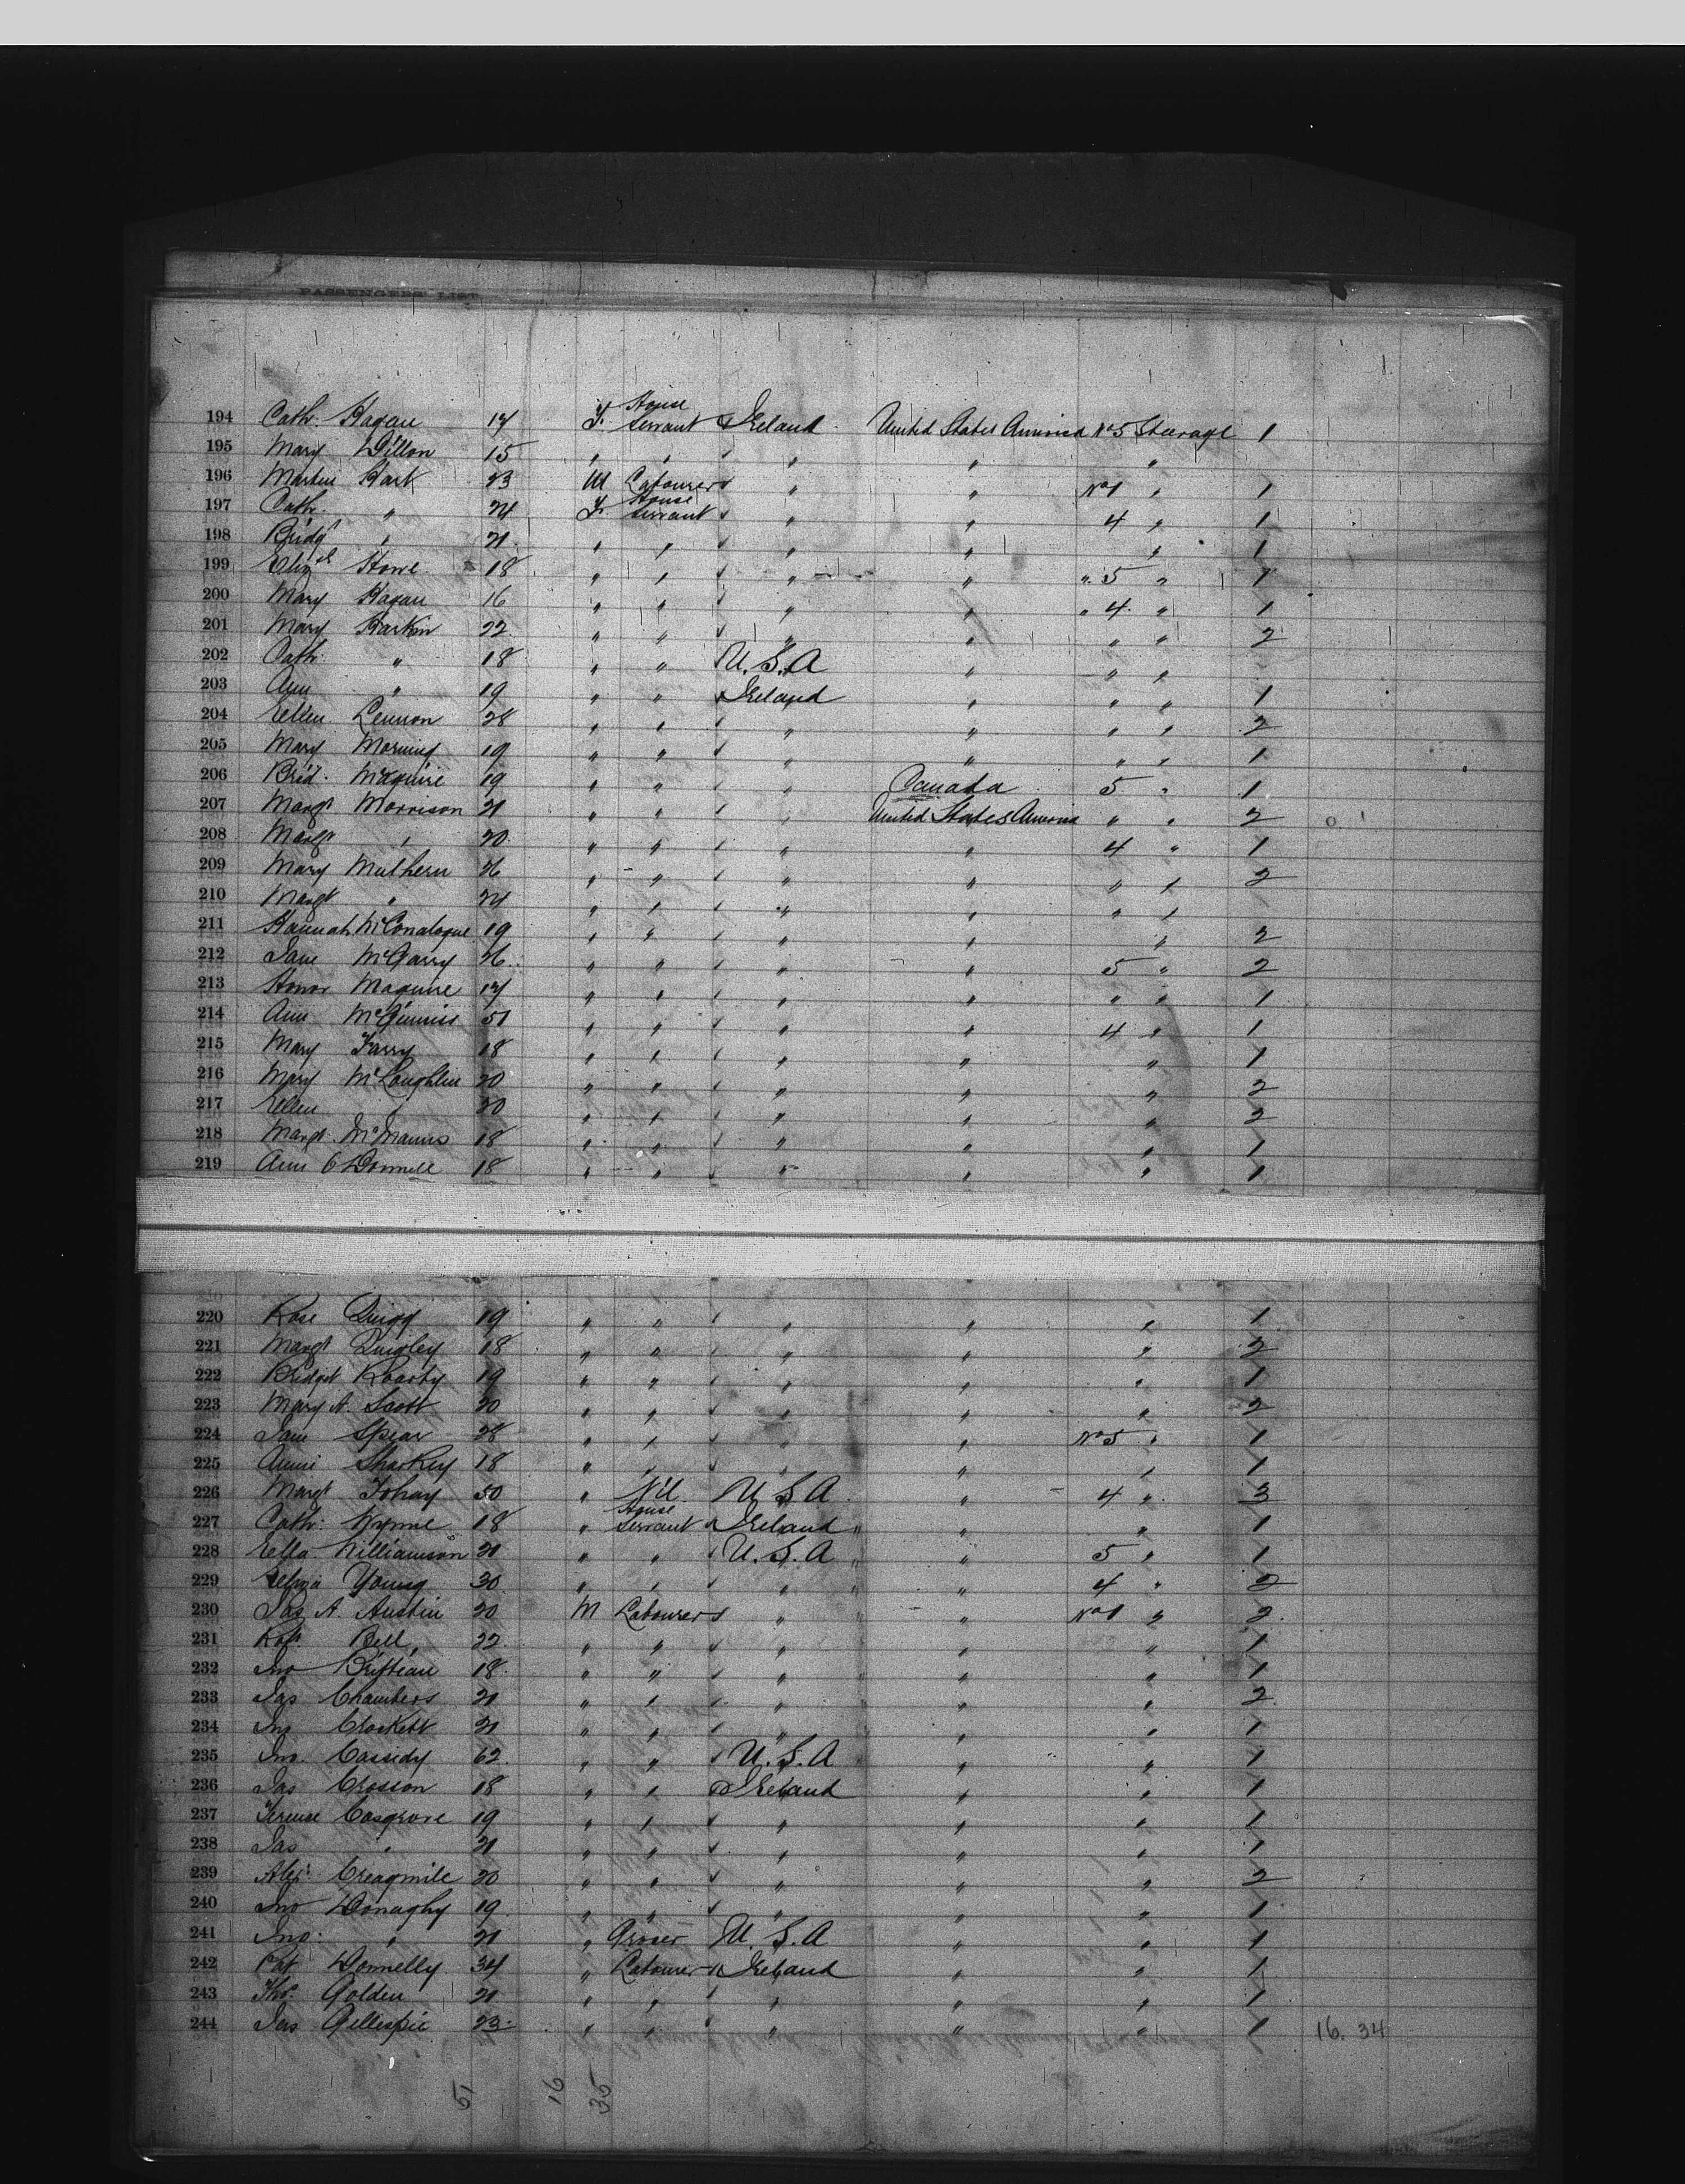 PASSENGERS LIST
194 Cath. Hagan 17 F House Servant Ireland United States America No 5 Steerage 1
195 Mary Dillon 15 " " " " "
196 Martin Hart 23 M Labourer " " No 1 " 1
197 Cath. " 24 F House Servant " " 4 " 1
198 Bridgt " 21 " " " " " 1
199 Elizth Howe 18 " " " " " 5 " 1
200 Mary Hagan 16 " " " " " 4 " 1
201 Mary Harkin 22 " " " " " " 2
202 Cath. " 18 " " U.S.A " " "
203 Ann " 19 " " Ireland " " " 1
204 Ellen Lennon 28 " " " " " " 2
205 Mary Morning 19 " " " " " " 1
206 Brid. McGuire 19 " " " Canada 5 " 1
207 Margt Morrison 21 " " " United States America " " 2
208 Margt " 20 " " " " 4 " 1
209 Mary Mulhern 26 " " " " " " 2
210 Margt " 24 " " " " " "
211 Hannah McConalogue 19 " " " " " 2
212 Jane McGarry 26 " " " " 5 " 2
213 Honor Maguire 17 " " " " " " 1
214 Ann McGinniss 51 " " " " 4 " 1
215 Mary Farry 18 " " " " " 1
216 Mary McLoughlin 20 " " " " " 2
217 Ellen " 20 " " " " " 2
218 Margt McManus 18 " " " " " 1
219 Ann O'Donnell 18 " " " " " 1
220 Rose Quigg 19 " " " " " 1
221 Margt Quigley 18 " " " " " 2
222 Bridget Roarty 19 " " " " " 1
223 Mary A. Scott 20 " " " " " 2
224 Jane Spear 28 " " " " No 5 " 1
225 Annie Sharkey 18 " " " " " 1
226 Margt 50 " Nil U S A " 4 " 3
227 Cath. Wynne 18 " House Servant Ireland " " 1
228 Ella Williamson 21 " " U.S.A " 5 " 1
229 Young 30 " " " " 4 " 2
230 Jas A. Austin 20 M Labourer " " No 1 " 2
231 Robt Bell 22 " " " " " 1
232 Jno 18 " " " " " 1
233 Jas Chambers 21 " " " " " 2
234 Jno Crockett 21 " " " " " 1
235 Jno. Cassidy 62 " " U.S.A " " 1
236 Jas Crosson 18 " " Ireland " " 1
237 Terence Cosgrove 19 " " " " " 1
238 Jas " 21 " " " " " 1
239 Alexr Creagmile 20 " " " " " 2
240 Jno Donaghy 19 " " " " " 1
241 Jno. " 21 " Grocer U.S.A " " 1
242 Pat Donnelly 34 " Labourer Ireland " " 1
243 Thos Golden 21 " " " " " 1
244 Jas Gillespie 23 " " " " " 1 16. 34
51 16 35